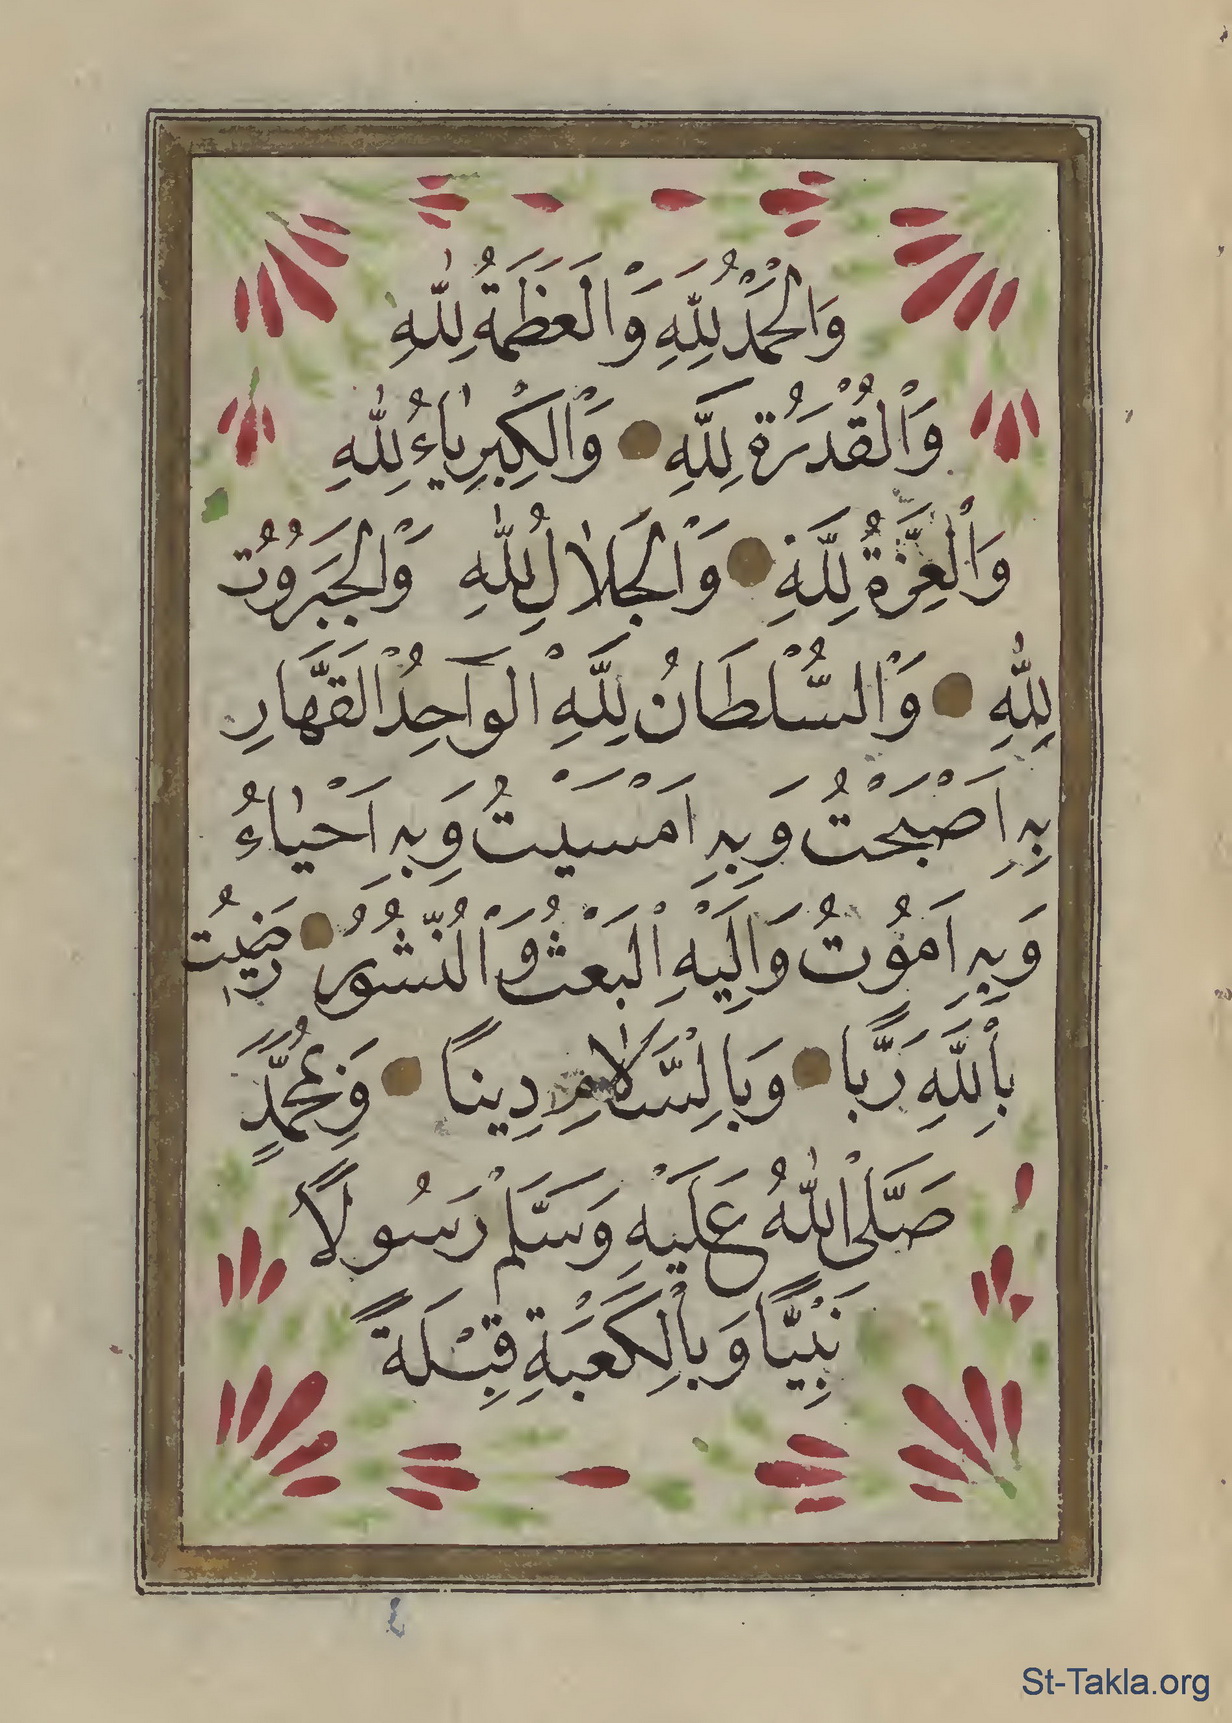 وَالْحَمْدُ لِلّٰهِ وَالْعَظَمَةُ لِلّٰهِ
وَالْقُدْرَةُ لِلَّهِ وَالْكِبْرِيَاءُ لِلّٰهِ
وَالْعِزَّةُ لِلَّهِ وَالْجَلَالُ لِلّٰهِ وَالْجَبَرُوتُ
لِلّٰهِ وَالسُّلْطَانُ لِلَّهِ الْوَاحِدُ الْقَهَّارِ
بِهِ اَصْبَحْتُ وَبِهِ اَمْسَيْتُ وَبِهِ اَحْيَاءُ
وَبِهِ اَمُوْتُ وَاِلَيْهِ الْبَعْثُ وَالنُّشُوْرُ رَضِيْتُ
بِاللَّهِ رَبًّا وَبِالسَّلَامِ دِينًا وَبِمُحَمَّدٍ
صَلَّى اللّٰهُ عَلَيْهِ وَسَلَّمَ رَسُولًا
نَبِيًّا وَبِالْكَعْبَةِ قِبْلَةً
٤
St-Takla.org